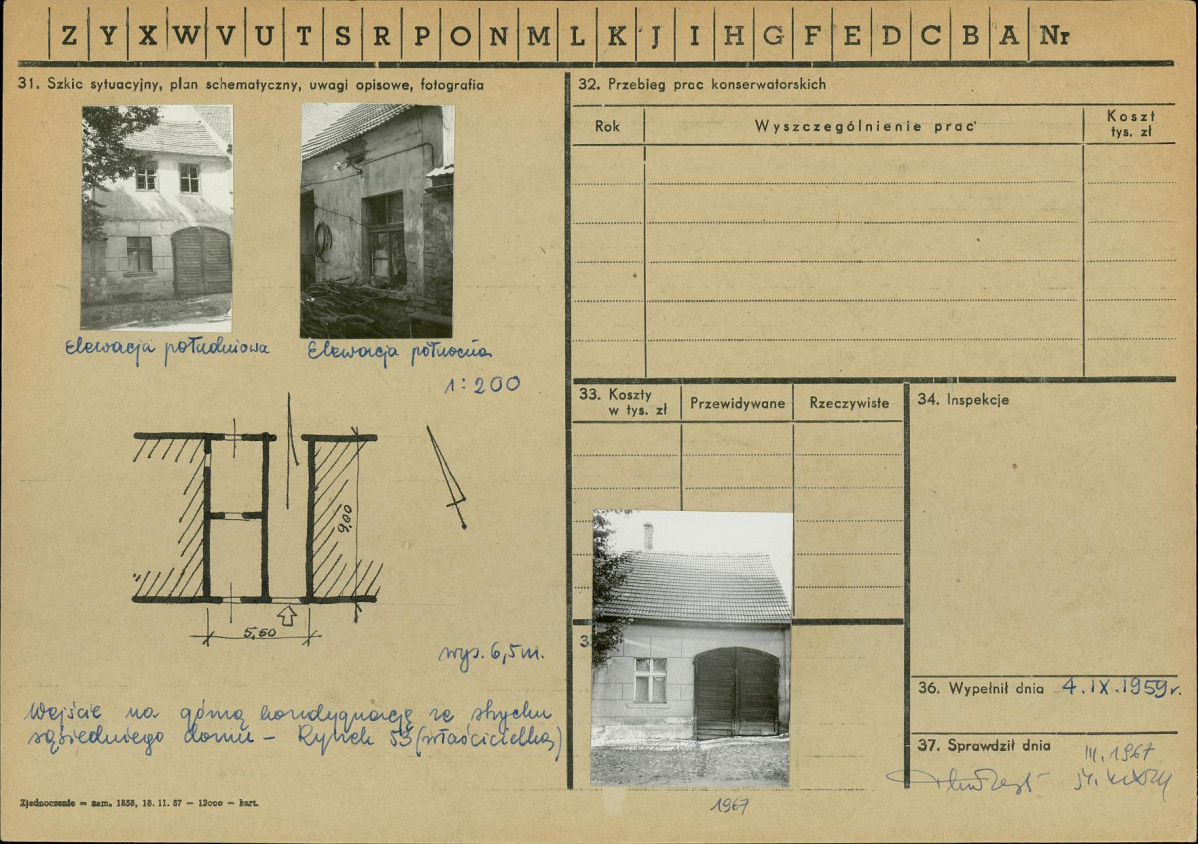 Z Y X W V U T S R P O N M L K J I H G F E D C B A Nr
31. Szkic sytuacyjny, plan schematyczny, uwagi opisowe, fotografia
Elewacja południowa
Elewacja północna
1:200
9,00
5,50
wys. 6,5 m.
Wejście na górną kondygnację ze strychu
sąsiedniego domu – Rynek 53 (właścicielka)
Zjednoczenie — zam. 1858, 18. 11. 57 — 12000 — kart.
32. Przebieg prac konserwatorskich
Rok
Wyszczególnienie prac
Koszt
tys. zł
33. Koszty
w tys. zł
Przewidywane
Rzeczywiste
34. Inspekcje
3
36. Wypełnił dnia 4.IX.1959r.
37. Sprawdził dnia
III.1967
1967